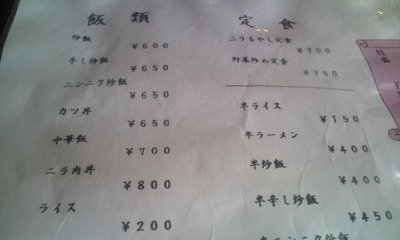 飯類
炒飯
¥600
辛し炒飯
¥650
ニンニク炒飯
¥650
カツ丼
¥650
中華飯
¥700
ニラ肉丼
¥800
ライス
¥200
定食
ニラもやし定食
¥700
野菜炒め定食
¥750
半ライス
¥150
半ラーメン
¥400
半炒飯
¥400
半辛し炒飯
¥450
半ニンニク炒飯